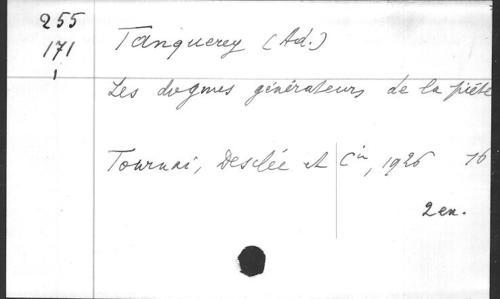 255
171
1
Tanquerey (Ad.)
Les dogmes générateurs de la piété
Tournai, Desclée et Cie, 1926 16
2 ex.